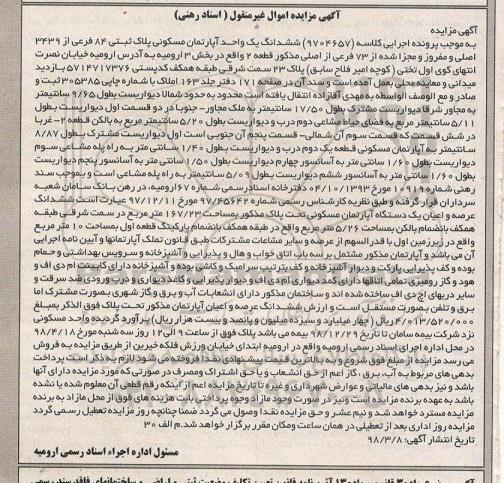 آگهی مزایده اموال غیرمنقول ( اسناد رهنی )
آگهی مزایده
به موجب پرونده اجرایی کلاسه (۹۷۰۴۶۵۷) ششدانگ یک واحد آپارتمان مسکونی پلاک ثبتی ۸۴ فرعی از ۳۴۳۹
اصلی و مفروز و مجزا شده از ۷۳ فرعی از اصلی مذکور قطعه ۲ واقع در بخش ۳ ارومیه به آدرس ارومیه خیابان نصرت
انتهای کوی اول تختی ( کوچه امیر فلاح سابق) پلاک ۲۳ سمت شرقی طبقه همکف کدپستی ۵۷۱۴۷۱۷۳۷۶ بازدید
میدانی و معاینه محلی بعمل آمده است و سند آن در صفحه ۷۱ دفتر جلد ۱۶۳ املاک با شماره چاپی ۳۰۵۳۸۵ ثبت و
صادر و مع الوصف الواسعه به مهدی آقازاده انتقال یافته است محدود به حدود شمالا دیواریست بطول ۹/۶۵ سانتیمتر
به مجاور شرقا دیواریست مشترک بطول ۱۷/۵۰ سانتیمتر به ملک مجاور- جنوبا در دو قسمت اول دیواریست بطول
۵/۱۱ سانتیمتر مربع به فضای حیاط مشاعی دوم درب و دیواریست بطول ۵/۲۰ سانتیمتر مربع به پالکن قطعه ۲- غربا
در شش قسمت که قسمت سوم آن شمالی- قسمت پنجم آن جنوبی است اول دیواریست مشترک بطول ۸/۸۷
سانتیمتر به آپارتمان مسکونی قطعه یک دوم درب و دیواریست بطول ۱/۴۰ سانتی متر به راه پله مشاعی سوم
دیواریست بطول ۱/۶۰ سانتی متر به آسانسور چهارم دیواریست بطول ۱/۵۰ سانتی متر به آسانسور پنجم دیواریست
بطول ۱/۶۰ سانتی متر به آسانسور ششم دیواریست بطول ۵/۰۹ سانتیمتر به راه پله مشاعی است و بموجب سند
رهنی شماره ۱۰۹۱۱۹ مورخ ۰۴/۱۰/۱۳۹۲ دفترخانه اسنادرسمی شماره ۶۷ ارومیه، در رهن بانک سامان شعبه
سرداران قرار گرفته و طبق نظریه کارشناس رسمی شماره ۹۷/۴۵۶۴۲ مورخ ۹۷/۱۲/۱۱ عبارت است ششدانگ
عرصه و اعیان یک دستگاه آپارتمان مسکونی تحت پلاک مذکور بمساحت ۱۶۷/۲۳ متر مربع در سمت شرقی طبقه
همکف بانضمام بالکن بمساحت ۵/۲۶ متر مربع واقع در طبقه همکف بانضمام پارکینگ قطعه اول بمساحت ۱۰ متر مربع
واقع در زیرزمین اول با قدرالسهم از عرصه و سایر مشاعات مشترکات طبق قانون تملک آپارتمانها و آیین نامه اجرایی
آن می باشد و آپارتمان مذکور مشتمل بر سه باب اتاق خواب و هال و پذیرایی و آشپزخانه و سرویس بهداشتی و حمام
بوده و کف پذیرایی پارکت و دیوار آشپزخانه و کف بترتیب سرامیک و کاشی بوده و آشپزخانه دارای کابینت ام دی اف و
هود و گاز رومیزی تمامی اتاقها دارای کمد دیواری ام دی اف و دیوار پذیرایی و کاغذدیواری و درب ورودی ضد سرقت و
سایر دربهای اچ دی اف ساخته شده اند و ساختمان مذکور دارای انشعابات آب و برق و گاز شهری بصورت مشترک اما
برق و تلفن بصورت مستقل است و ارزش ششدانگ عرصه و اعیان آپارتمان مذکور تحت پلاک فوق الذکر بمبلغ
۴/۰۱۳/۵۲۰/۰۰۰ ریال ( چهار میلیارد و سیزده میلیون و پانصد و بیست هزار ریال) برآورد گردیده واحد مسکونی
نزد شرکت بیمه سامان تا تاریخ ۹۸/۱۲/۲۹ بیمه می باشد پلاک فوق از ساعت ۹ الی ۱۲ روز سه شنبه مورخ ۹۸/۴/۱۸
در محل اداره اجرای اسناد رسمی ارومیه واقع در ارومیه ابتدای خیابان ورزش فلکه خیرین از طریق مزایده به فروش
می رسد مزایده از مبلغ فوق شروع و به بالاترین قیمت پیشنهادی نقدا فروخته می شود لازم به ذکر است پرداخت
بدهی های مربوط به آب، برق ، گاز اعم از حق انشعاب و یا حق اشتراک ومصرف در صورتی که مورد مزایده دارای آنها
باشد و نیز بدهی های مالیاتی و عوارض شهرداری و غیره تا تاریخ مزایده اعم از اینکه رقم قطعی آن معلوم شده یا نشده
باشد به عهده برنده مزایده است ونیز در صورت وجود مازاد وجوه پرداختی بابت هزینه های فوق از محل مازاد به برنده
مزایده مسترد خواهد شد و نیم عشر و حق مزایده نقدا وصول می گردد ضمنا چنانچه روز مزایده تعطیل رسمی گردد
مزایده روز اداری بعد از تعطیلی در همان ساعت ومکان مقرر برگزار خواهد شد.م الف ۳۰
تاریخ انتشار آگهی: ۹۸/۳/۸
مسئول اداره اجراء اسناد رسمی ارومیه